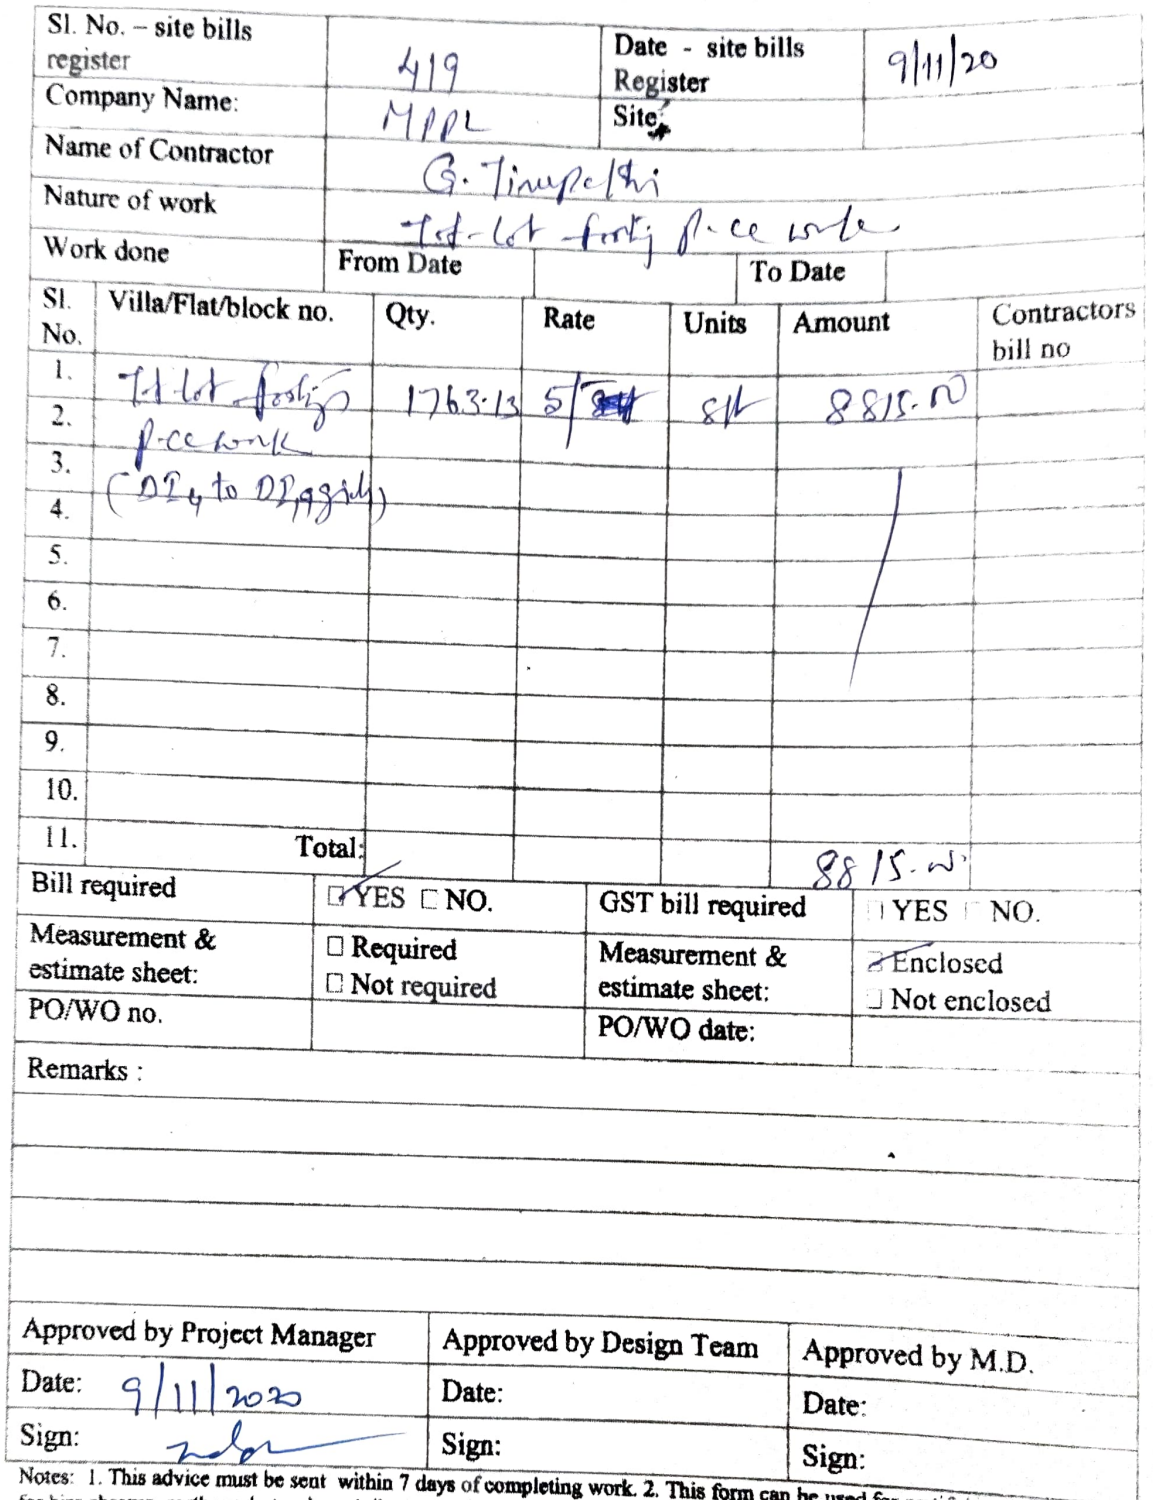 Sl. No. – site bills register 419 Date - site bills Register 9/11/20
Company Name: MPPL Site:
Name of Contractor G. Tirupathi
Nature of work Tot-lot footing p.cc work
Work done From Date To Date
Sl. No. Villa/Flat/block no. Qty. Rate Units Amount Contractors bill no
1. Tot lot footings 1763.13 5/ sft 8815.00
2. p.cc work
3. to
4.
5.
6.
7.
8.
9.
10.
11. Total: 8815.00
Bill required YES NO. GST bill required YES NO.
Measurement & estimate sheet: Required Not required Measurement & estimate sheet: Enclosed Not enclosed
PO/WO no. PO/WO date:
Remarks :
Approved by Project Manager Approved by Design Team Approved by M.D.
Date: 9/11/2020 Date: Date:
Sign: Sign: Sign:
Notes: 1. This advice must be sent within 7 days of completing work. 2. This form can be used for